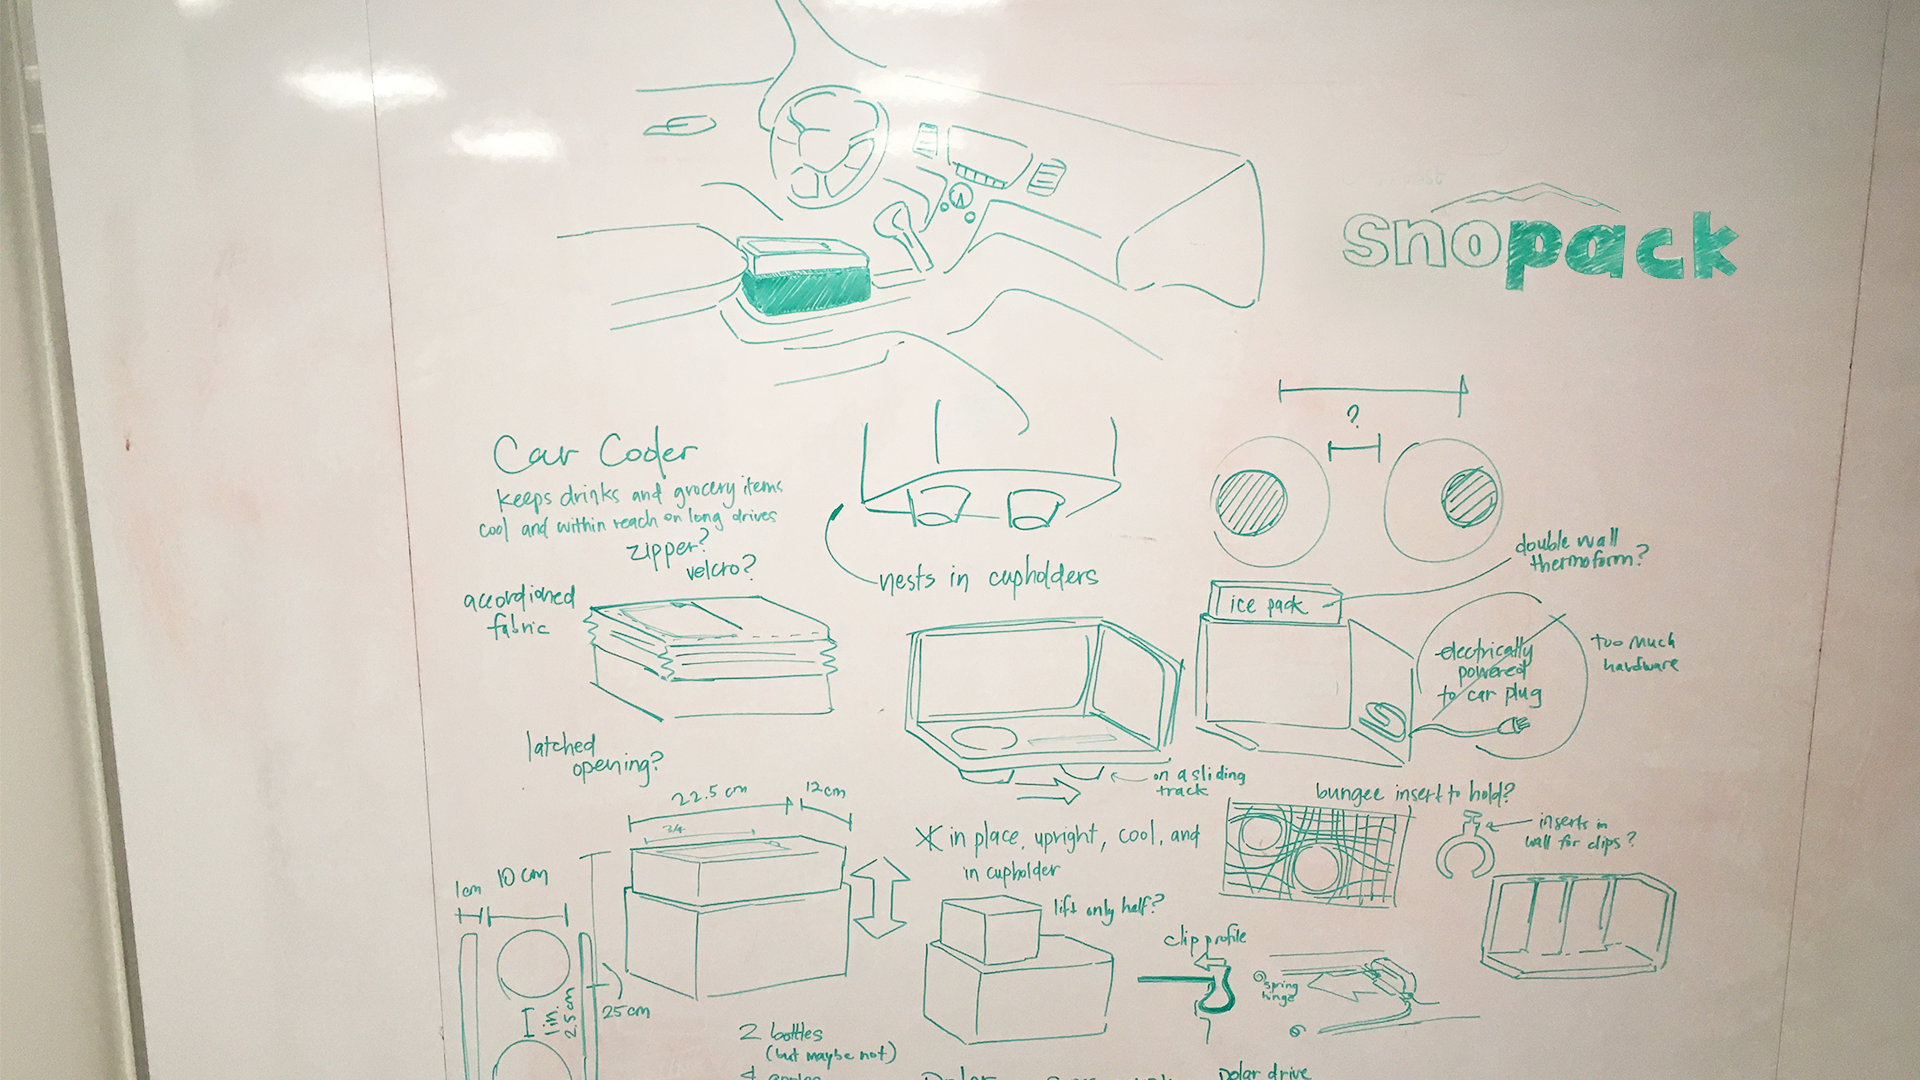 snopack
Car Cooler
keeps drinks and grocery items
cool and within reach on long drives
zipper?
velcro?
accordioned
fabric
nests in cupholders
?
double wall
thermoform?
ice pack
electrically
powered
to car plug
too much
hardware
latched
opening?
on a sliding
track
22.5 cm
12cm
24
in place, upright, cool, and
in cupholder
bungee insert to hold?
inserts in
wall for clips?
1cm
10 cm
1in.
2.5cm
25cm
lift only half?
clip profile
spring
hinge
2 bottles
(but maybe not)
4
polar drive